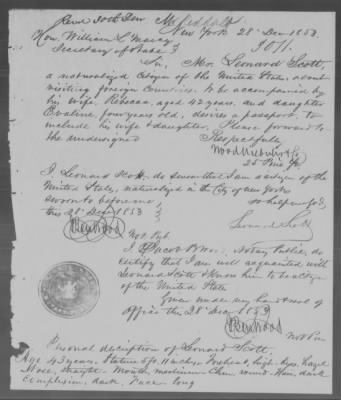 New York 28 Dec 1853
Hon. William L. Marcy
Secretary of State
3011.
Sir, Mr. Leonard Scott,
a naturalized citizen of the United States, about
visiting foreign countries to be accompanied by
his wife, Rebecca, aged 42 years, and daughter
Evaline, four years old, desires a passport, to
include his wife & daughter. Please forward to
the undersigned
Respectfully
25 Pine St
I, Leonard Scott, do swear that I am a citizen of the
United States, naturalized in the City of New York
sworn to before me,
this 28 Dec 1853
So help me God,
Leonard Scott
Not. Pub.
I Jacob Notary Public, do
certify that I am well acquainted with
Leonard Scott & know him to be a citizen
of the United States
Given under my hand & seal of
Office this 28 Dec 1853
Not Pub
Personal description of Leonard Scott.
Age 43 years. Stature 5 ft. 11 inches. Forehead, high. Eyes, hazel
Nose, straight. Mouth, medium. Chin, round. Hair, dark
Complexion, dark. Face long